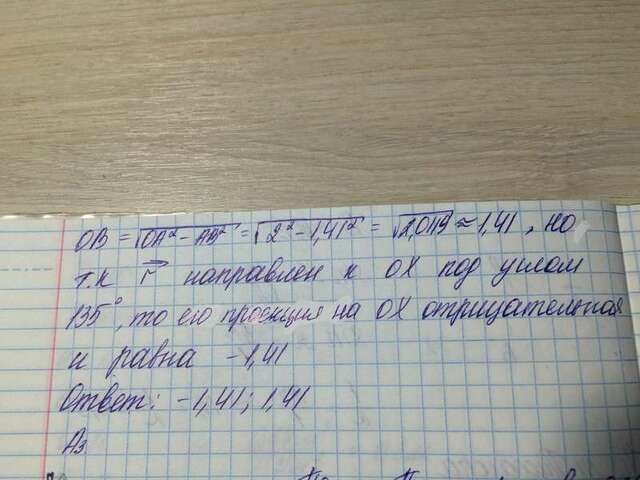 OB = √OA² - AB² = √2² - 1,41² = √2,0119 ≈ 1,41, но
т.к r⃗ направлен к OX под углом
135°, то его проекция на OX отрицательная
и равна -1,41
Ответ: -1,41; 1,41
Аз